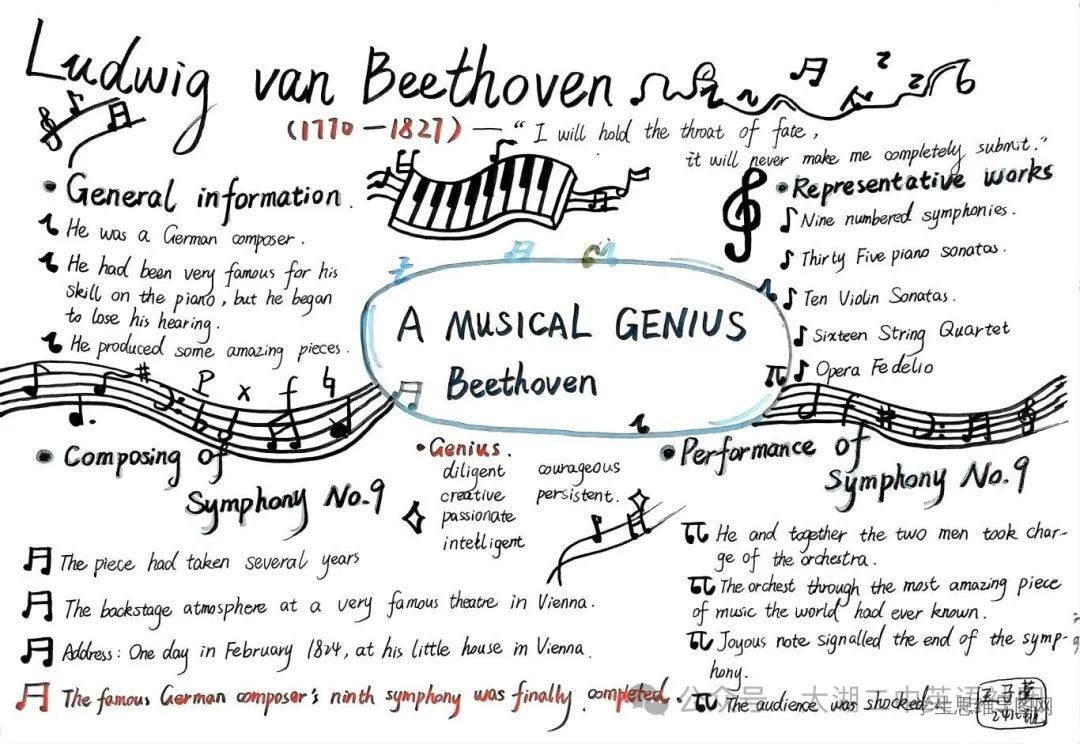 Ludwig van Beethoven
(1770-1827) — "I will hold the throat of fate,
it will never make me completely submit."
• General information.
He was a German composer.
He had been very famous for his
skill on the piano, but he began
to lose his hearing.
He produced some amazing pieces.
• Representative works
Nine numbered symphonies.
Thirty Five piano sonatas.
Ten Violin Sonatas.
Sixteen String Quartet
Opera Fedelio
A MUSICAL GENIUS
Beethoven
• Composing of
Symphony No.9
The piece had taken several years
The backstage atmosphere at a very famous theatre in Vienna.
Address: One day in February 1824, at his little house in Vienna.
The famous German composer's ninth symphony was finally completed.
• Genius.
diligent courageous
creative persistent.
passionate
intelligent
• Performance of
Symphony No.9
He and together the two men took char-
ge of the orchestra.
The orchest through the most amazing piece
of music the world had ever known.
Joyous note signalled the end of the symp-
hony.
The audience was shocked.
公众号